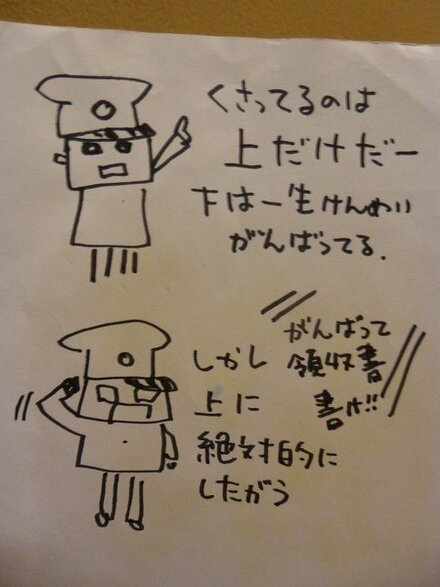 くさってるのは
上だけだー
下は一生けんめい
がんばってる.
しかし
上に
絶対的に
したがう
がんばって
領収書
書け!!